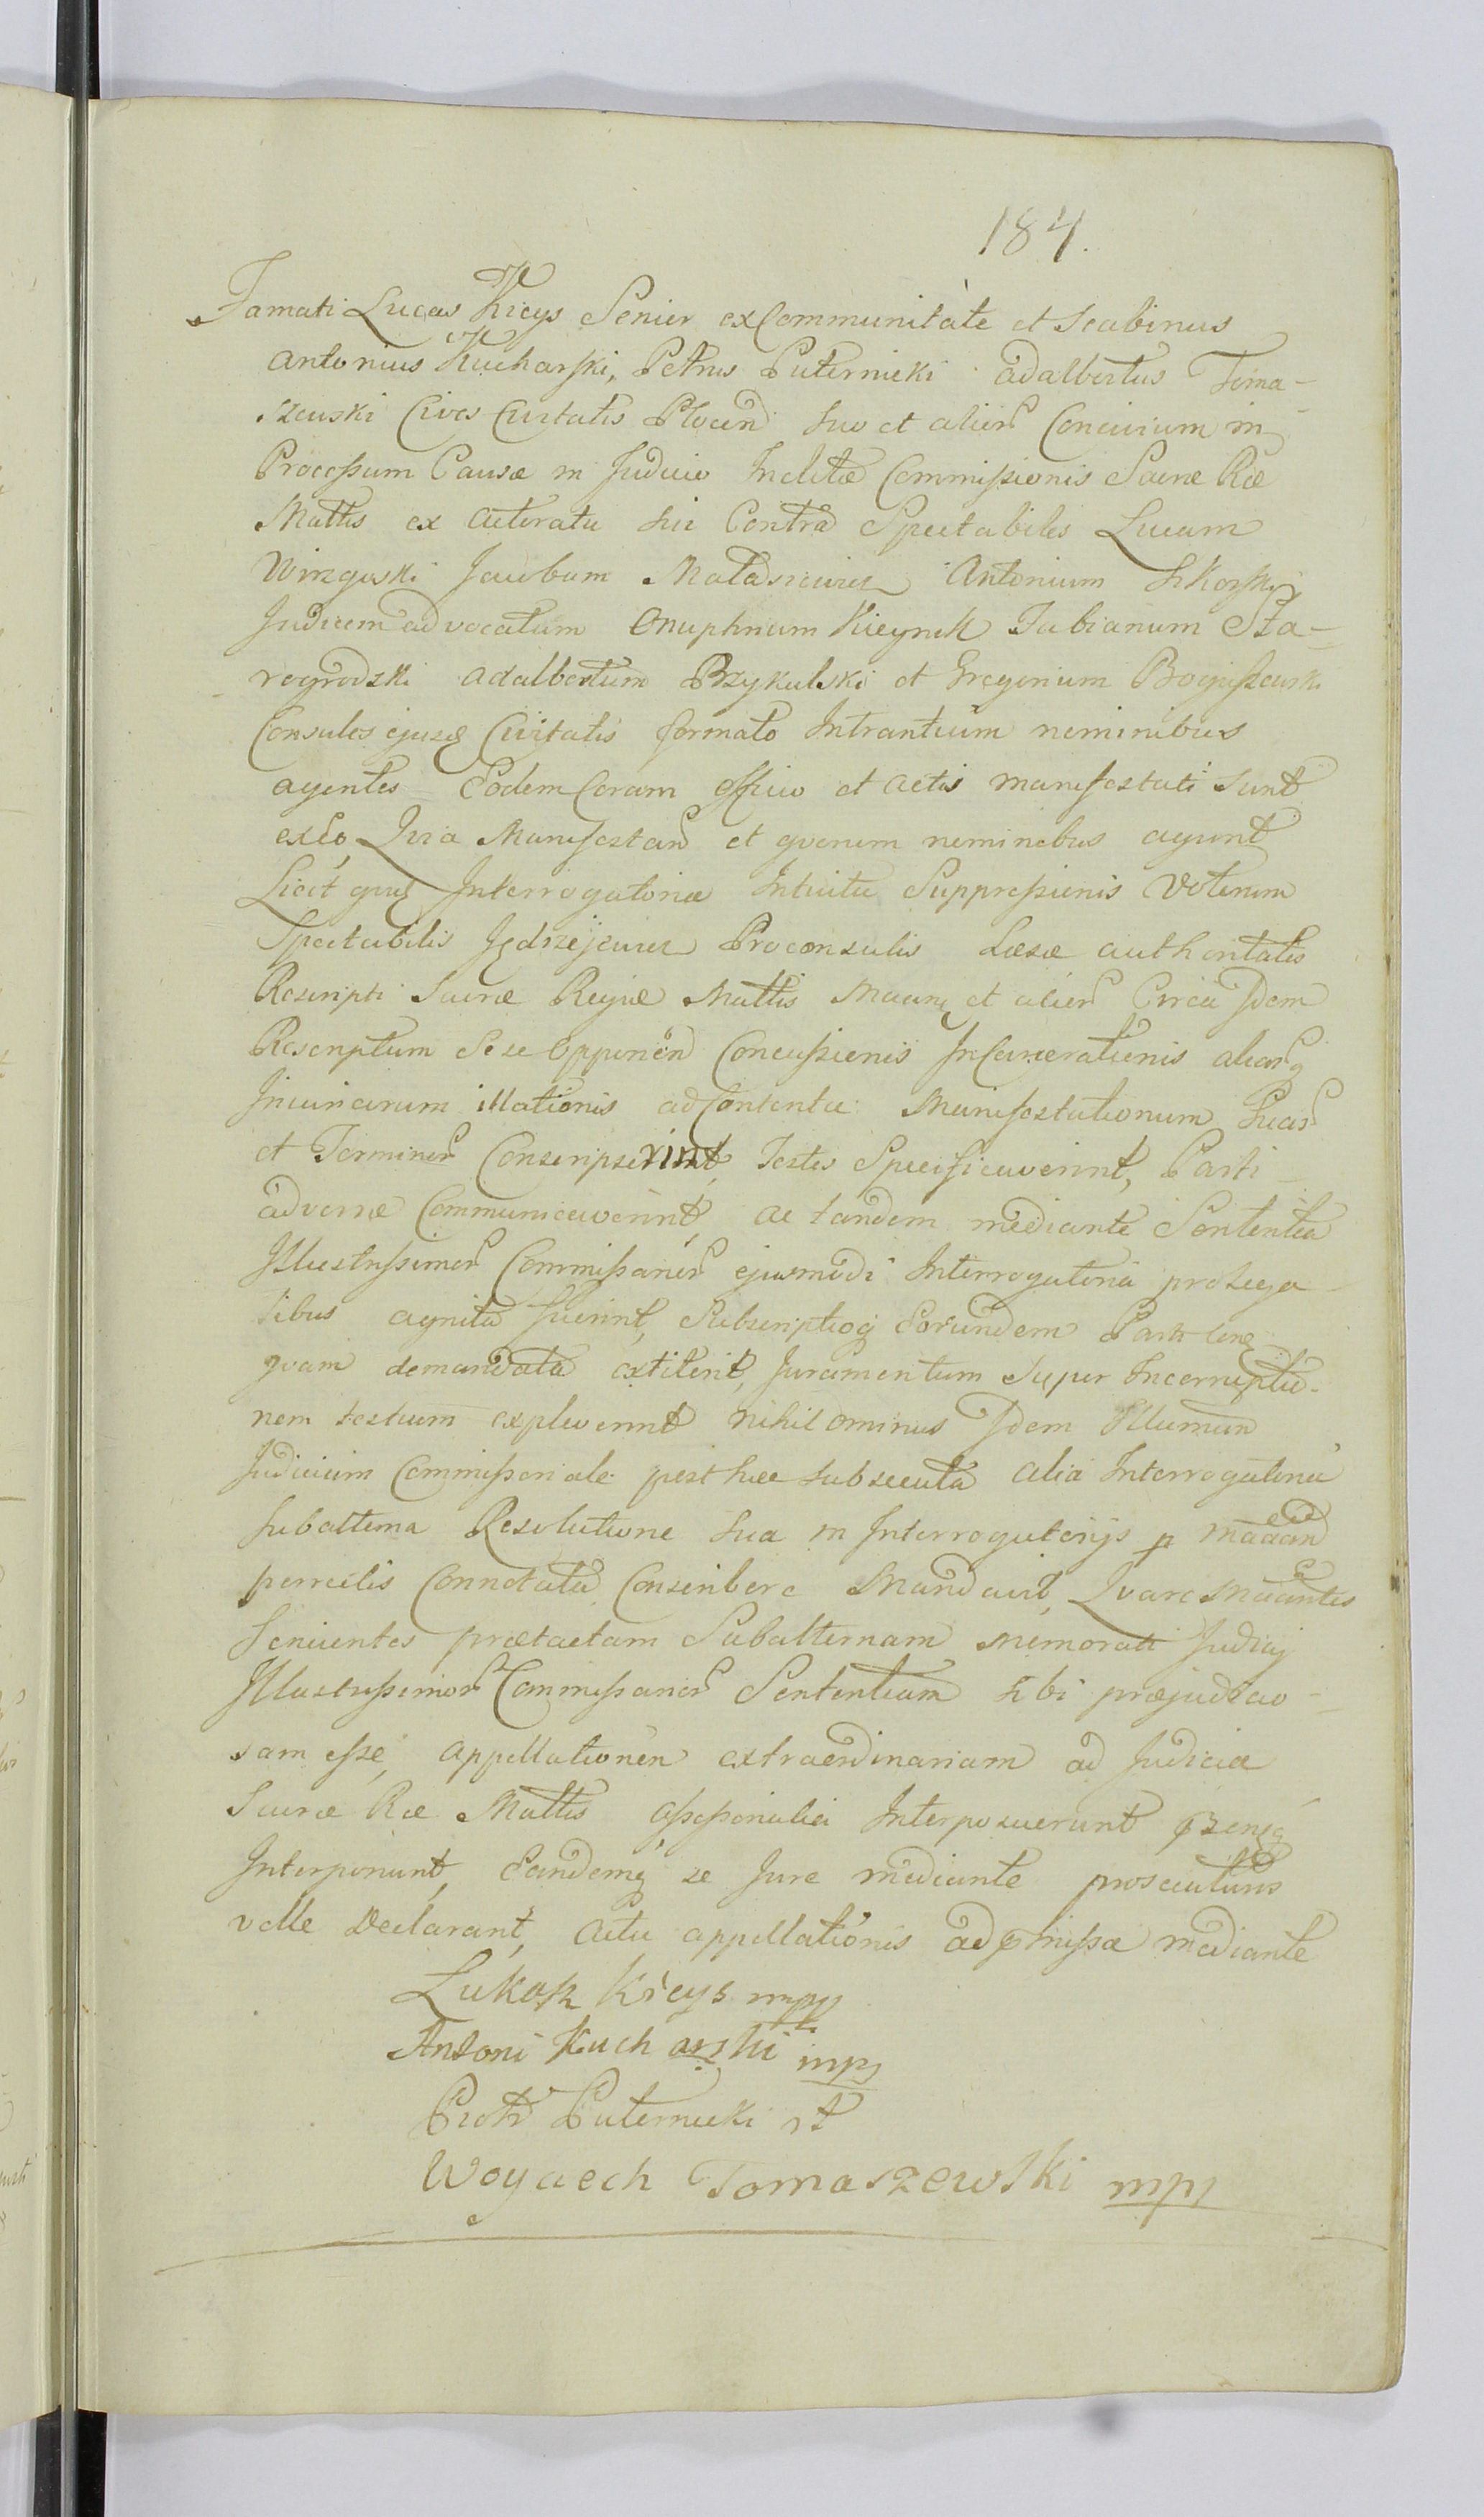 184.
Famati Lucas Kicys Senior ex Communitate et Scabinus
Antonius Kucharski, Petrus Puternicki Adalbertus Toma-
szewski Cives Civitatis Plocen suo et alior Concivium in
Processum Causæ in Judicio Inclitæ Commissionis Sacræ Ræ
Mattis ex Citeratu sui Contra Spectabiles Lucam
Jacobum Antonium
Judicem advocatum Onuphrium Kieynik Fabianum Sta-
rogrodzki Adalbertum Brzykulski et Gregorium Boguszewski
Consules ejusq Civitatis formato Intrantium nominibus
agentes Eodem Coram Officio et Actis manifestati sunt
exeo Quia Manifestan et quorum nominibus agunt
Licet Interrogatoria Intuitu Suppressionis Voterum
Spectabilis Jędrzejewicz Proconsulis Læsæ authoritatis
Rescripti Sacræ Regiæ Mattis et alior Circa Idem
Rescriptum Sese Opponen Concussionis Incarcerationis aliarq
Iniuriarum illationis ad Contenta Manifestationum Suar
et Terminor Conscripserint, Testes Specificaverint, Parti
adversæ Communicaverint, ac tandem mediante Sententia
Illustrissimor Commissarior ejusmodi Interrogatoria pro Lega
libus agnita fuerint, Subscriptioq Eorundem Parti
quam demandata extiterit, Juramentum Super Incorruptio-
nem testium expleverint nihilominus Idem Illumum
Judicium Commissoriale post hæc subsecuta alia Interrogatoria
subalterna Resolutione sua in Interrogatorijs p
Connotata Conscribere Mandavit, Quare
Senientes prætactam Subalternam memorati Judicij
Illustrissimor Commissarior Sententiam sibi præjudicio-
sam esse, appellationem extraordinariam ad Judicia
Sacræ Ræ Mattis Assessorialia Interposuerunt
Interponunt, Eandemq se Jure mediante prosecuturos
velle Declarant, Actu appellationis mediante
Lukasz Kicys mpp
Antoni Kucharski mpp
Piotr Puternicki
Woyciech Tomaszewski mpp